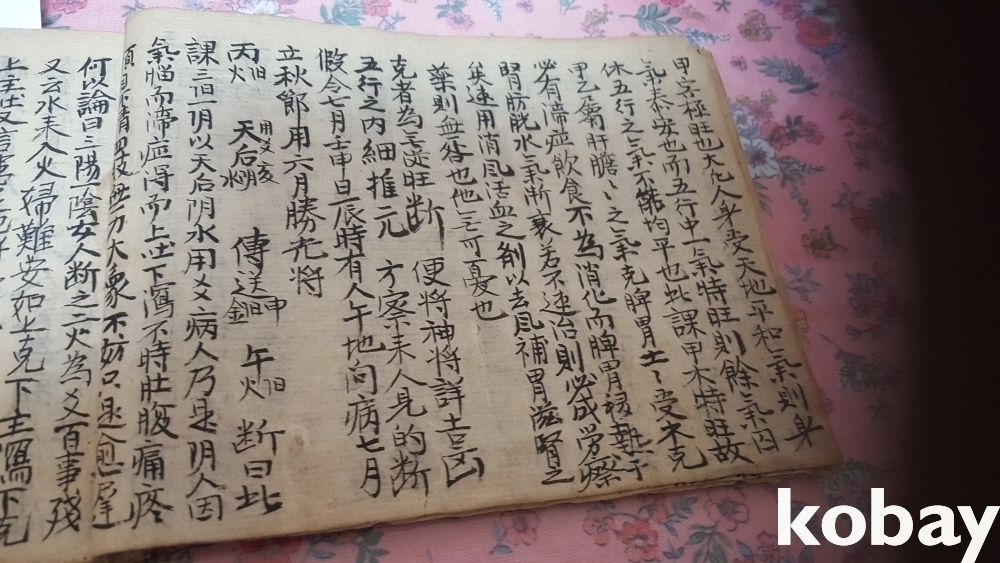 甲京極旺也大凡人身受天地平和氣則身
氣泰安也而五行中一氣特旺則餘氣囚
休五行之氣不能均平也此課甲木特旺故
甲乙屬肝膽〻之氣克脾胃土〻受木克
必有滯症飲食不為消化而脾胃
腎肪脱水氣漸衰若不速治則必成勞瘵
矣速用消風活血之劑以去風補胃滋腎之
藥則無咎也他言可憂也
克者為言逆旺断 便將神將詳吉凶
五行之内細推元 方察来人見的断
假令七月壬申日辰時有人午地向病七月
立秋節用六月勝光將
丙火旧 天后 用爻亥 傳送金旧申 午火旧 断曰此
課三旧一阴以天后阴水用爻病人乃是阴人因
氣惱而滯症得而上吐下瀉不時肚腹痛疼
四肢無力大象不妨只是愈遲
何以論曰三陽一陰女人断之二火為爻百事殘
又云水来入火婦難安如上克下主瀉下克
上主吐